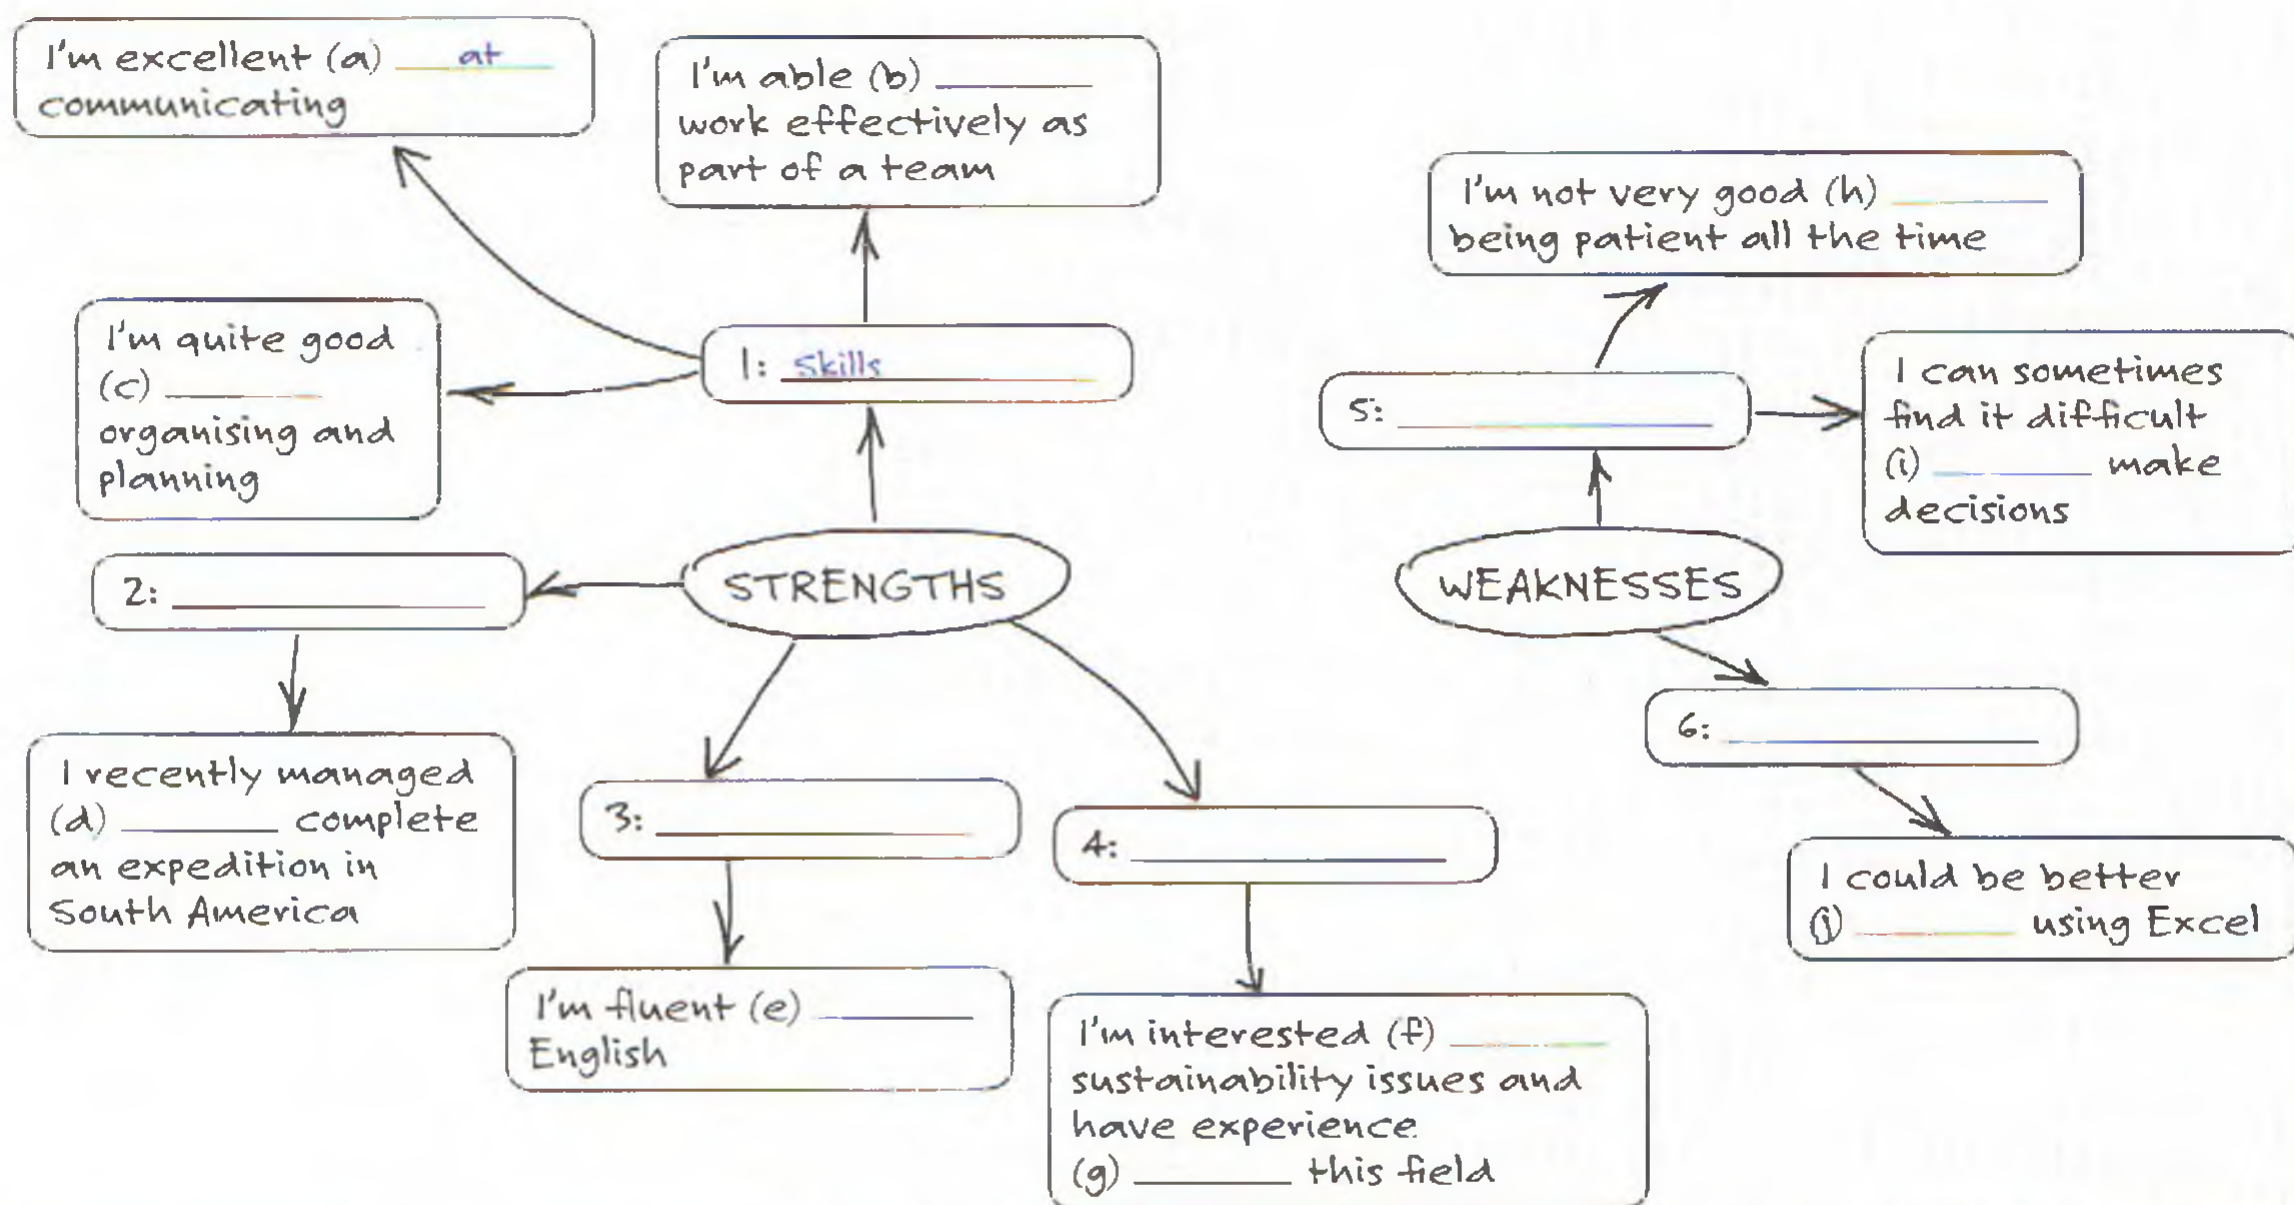 I'm excellent (a) at
communicating
I'm able (b)
work effectively as
part of a team
I'm quite good
(c)
organising and
planning
1: Skills
STRENGTHS
2:
I recently managed
(d) complete
an expedition in
South America
3:
I'm fluent (e)
English
4:
I'm interested (f)
sustainability issues and
have experience
(g) this field
I'm not very good (h)
being patient all the time
5:
I can sometimes
find it difficult
(i) make
decisions
WEAKNESSES
6:
I could be better
(j) using Excel